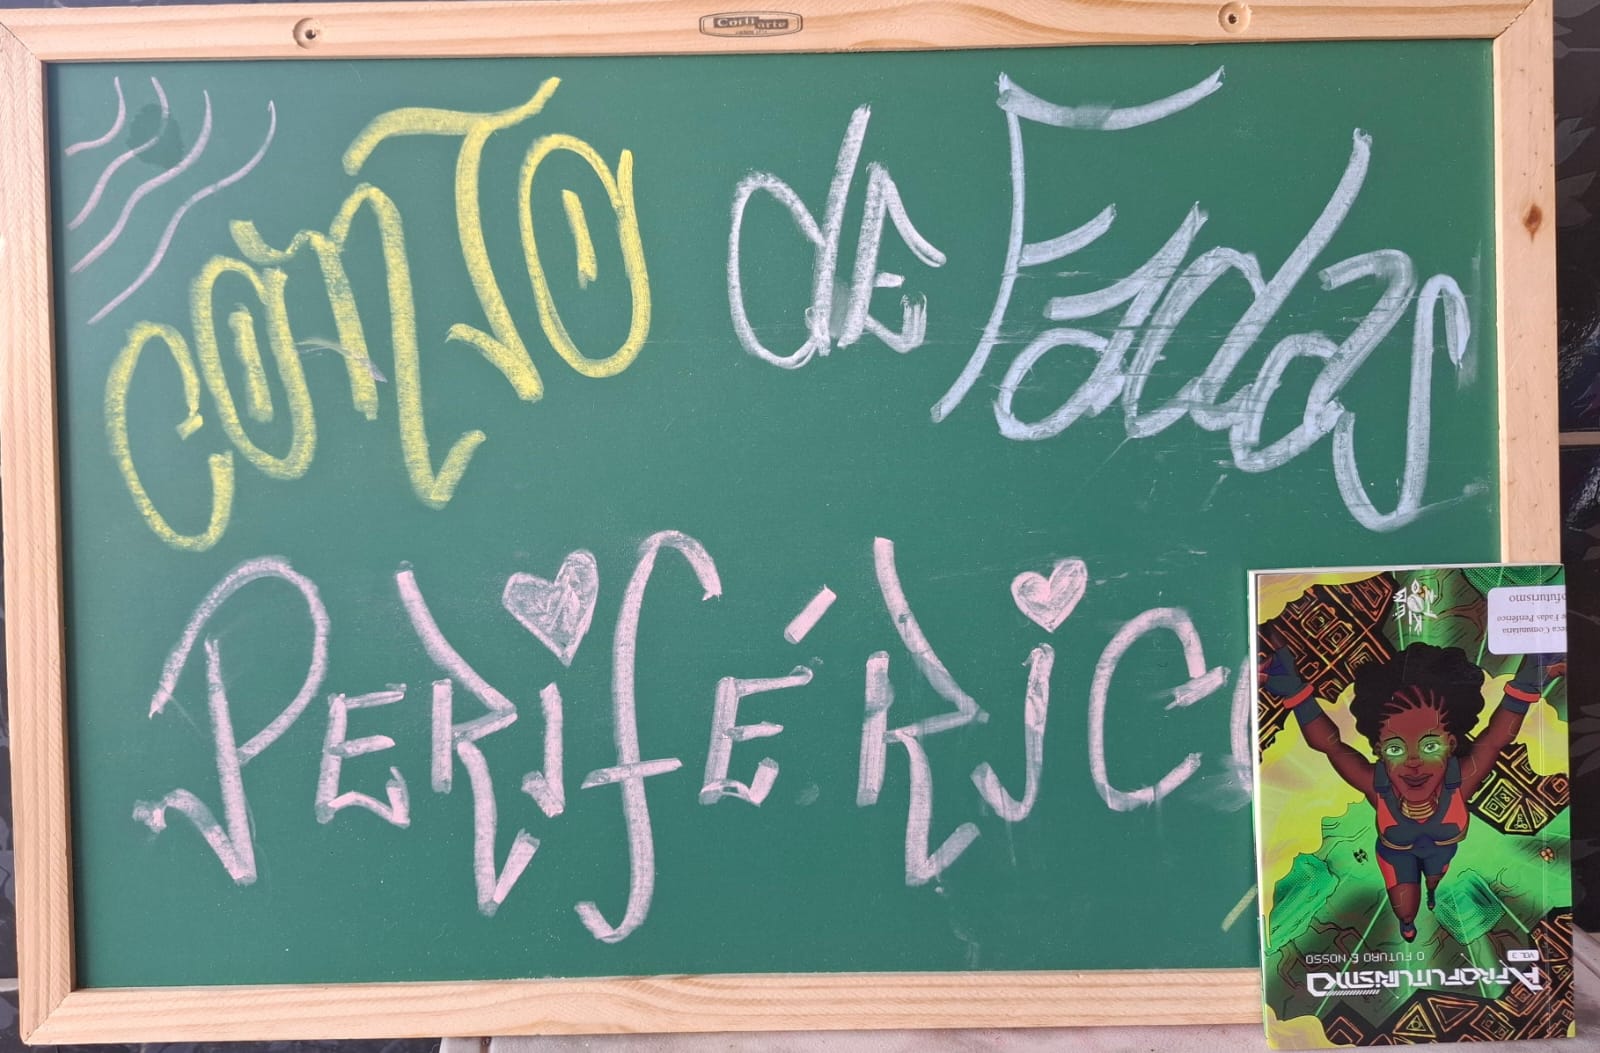 Corti arte
CONTO de Fadas
PERIFÉRICO
AFROFUTURISMO
VOL. 3
O FUTURO É NOSSO
eca Comunitária
e Fadas Periférico
ofuturismo